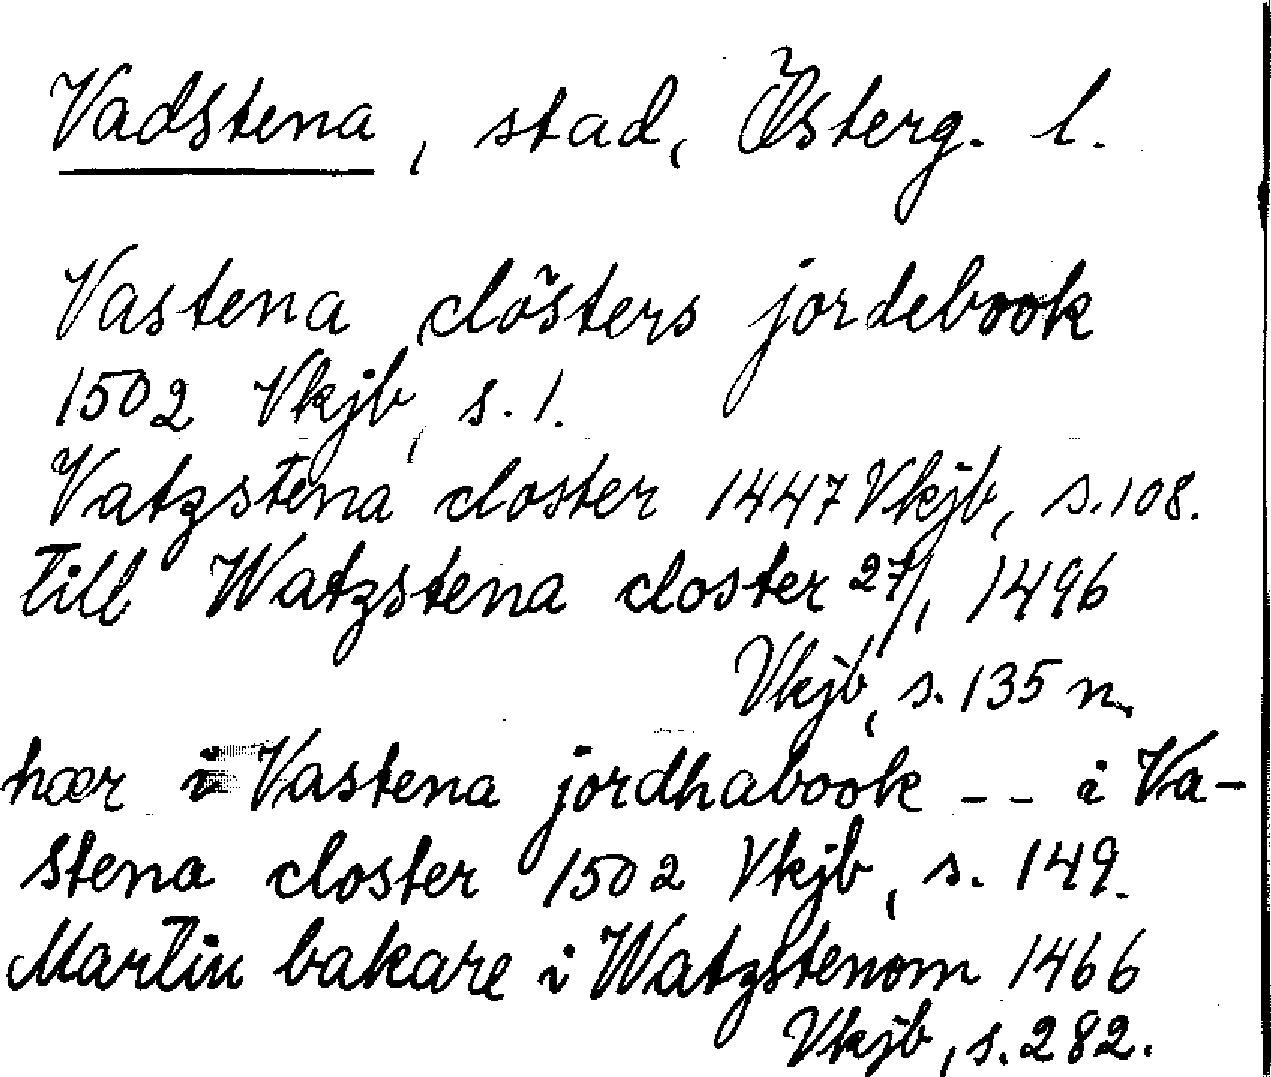 Vadstena, stad, Österg. l.
Vastena clösters jordebook
1502 Vkjb, s. 1.
Vatzstena closter 1447 Vkjb, s. 108.
till Watzstena closter 27/1 1496
Vkjb, s. 135 n.
hær i Vastena jordhabook - - i Va-
stena closter 1502 Vkjb, s. 149.
Martin bakare i Watzstenom 1466
Vkjb, s. 282.